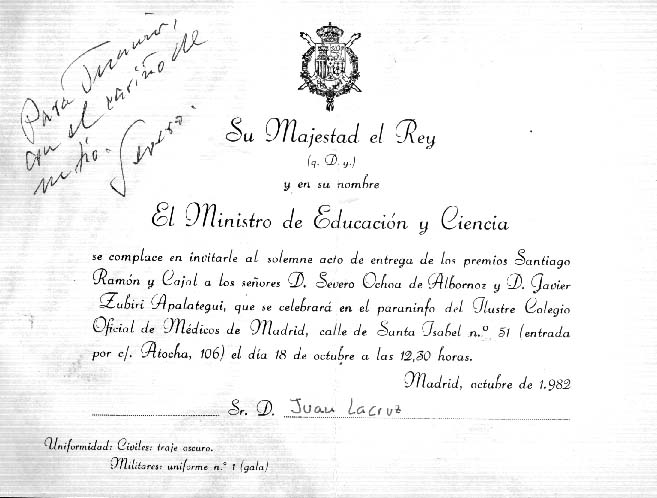 Para Juanino,
con el cariño de
su tío.
Severo.
Su Majestad el Rey
(q. D. g.)
y en su nombre
El Ministro de Educación y Ciencia
se complace en invitarle al solemne acto de entrega de los premios Santiago
Ramón y Cajal a los señores D. Severo Ochoa de Albornoz y D. Javier
Zubiri Apalategui, que se celebrará en el paraninfo del Ilustre Colegio
Oficial de Médicos de Madrid, calle de Santa Isabel n.º 51 (entrada
por c/. Atocha, 106) el día 18 de octubre a las 12,30 horas.
Madrid, octubre de 1.982
Sr. D. Juan Lacruz
Uniformidad: Civiles: traje oscuro.
Militares: uniforme n.º 1 (gala)